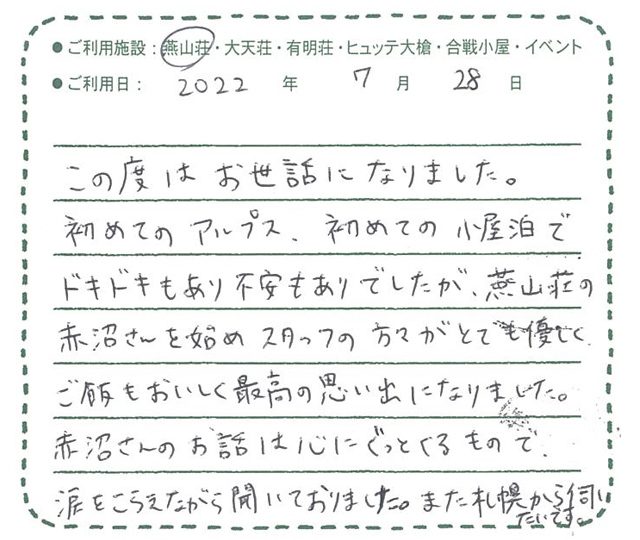 ●ご利用施設：燕山荘・大天荘・有明荘・ヒュッテ大槍・合戦小屋・イベント
●ご利用日： 2022 年 7 月 28 日
この度は お世話に なりました。
初めての アルプス、初めての 小屋泊で
ドキドキもあり 不安もありでしたが、燕山荘の
赤沼さんを始め スタッフの 方々がとても優しく、
ご飯もおいしく最高の思い出になりました。
赤沼さんの お話は心にぐっとくるもので、
涙をこらえながら聞いておりました。また札幌から伺い
たいです。